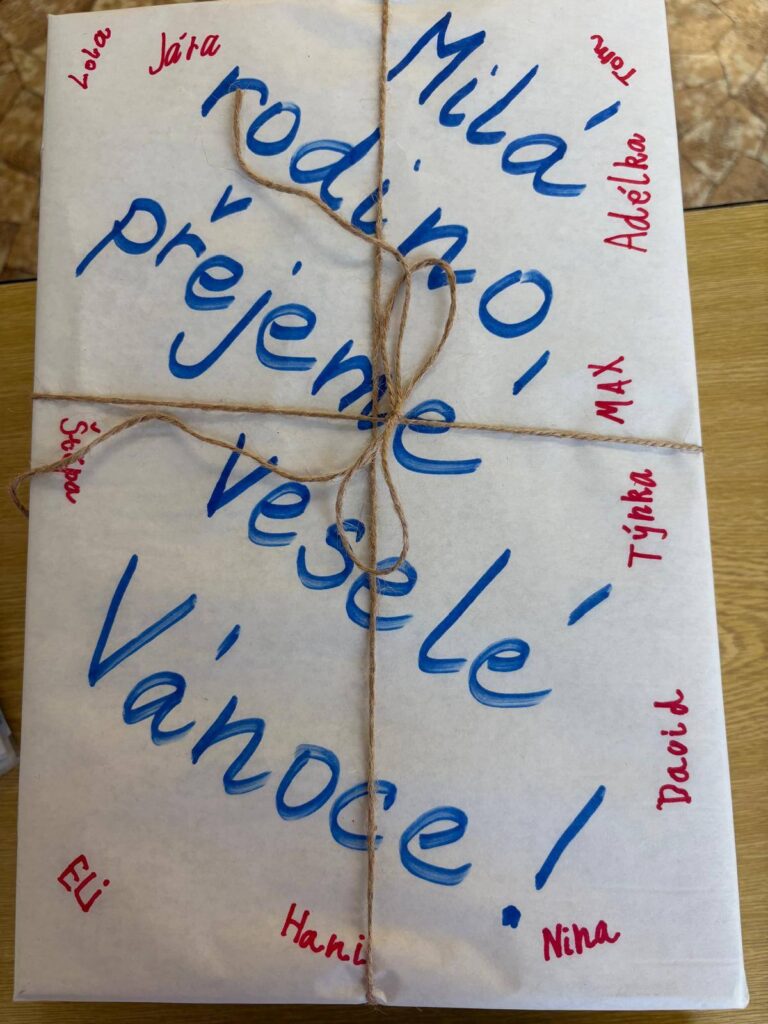 Lola
Jára
Tom
Milá
rodino,
Adélka
přejeme
MAX
Štěpa
Týnka
veselé
Vánoce!
David
Eli
Hani
Nina